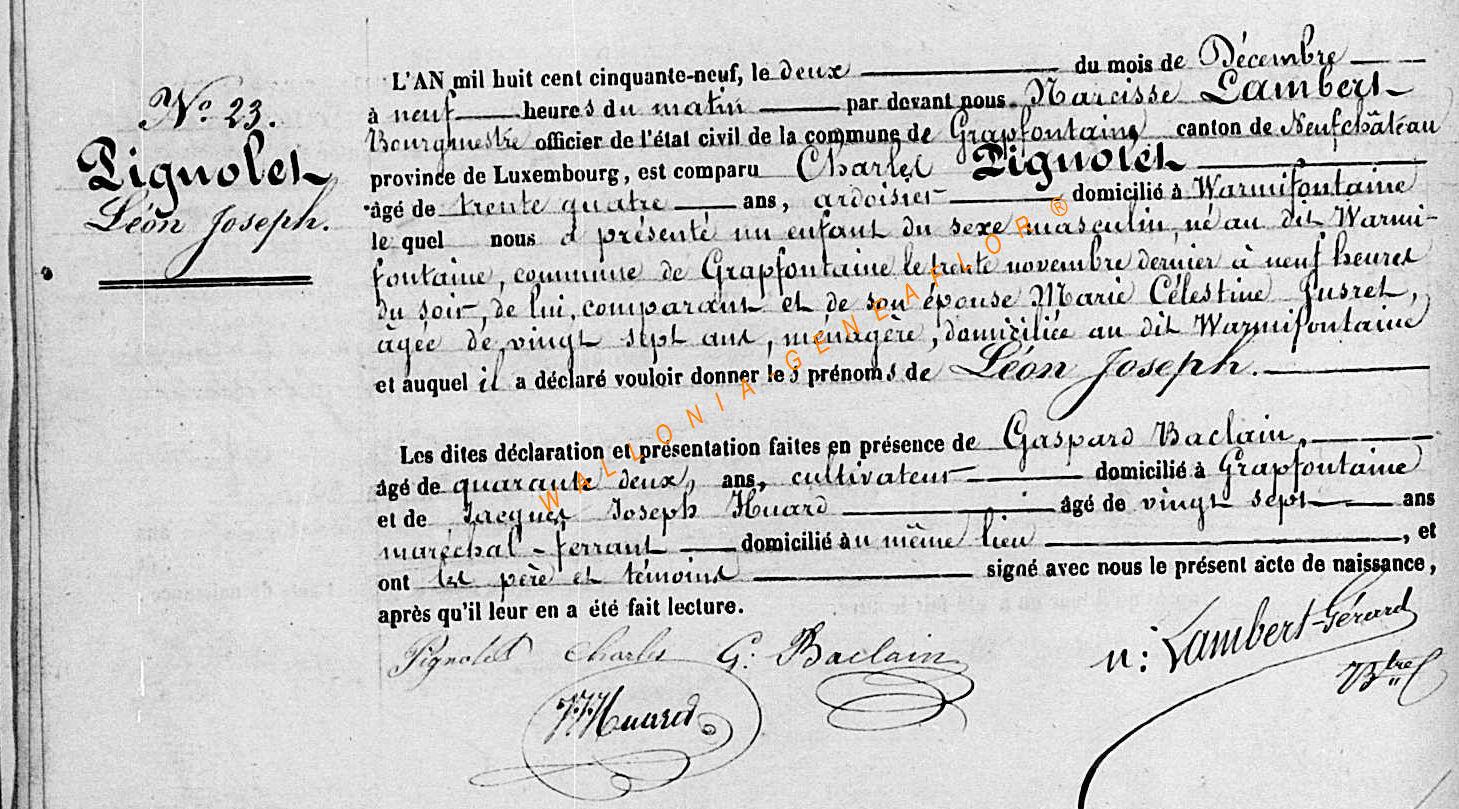 N.o 23.
Pignolet
Léon Joseph.
L'AN mil huit cent cinquante-neuf, le deux du mois de Décembre
à neuf heures du matin par devant nous Narcisse Lambert
Bourgmestre officier de l'état civil de la commune de Grapfontaine canton de Neufchâteau
province de Luxembourg, est comparu Charles Pignolet
âgé de trente quatre ans, ardoisier domicilié à Warmifontaine
le quel nous a présenté un enfant du sexe masculin, né au dit Warmi-
fontaine, commune de Grapfontaine le trente novembre dernier à neuf heures
du soir, de lui, comparant et de son épouse Marie Célestine
âgée de vingt sept ans, ménagère, domiciliée au dit Warmifontaine
et auquel il a déclaré vouloir donner les prénoms de Léon Joseph.
Les dites déclaration et présentation faites en présence de Gaspard Baclain,
âgé de quarante deux, ans, cultivateur domicilié à Grapfontaine
et de Jacques Joseph Huard âgé de vingt sept ans
maréchal-ferrant domicilié au même lieu, et
ont les père et témoins signé avec nous le présent acte de naissance,
après qu'il leur en a été fait lecture.
Pignolet Charles G: Baclain n: Lambert-Gérard
JJHuard Btre
WALLONIA-GENEAFLOR®